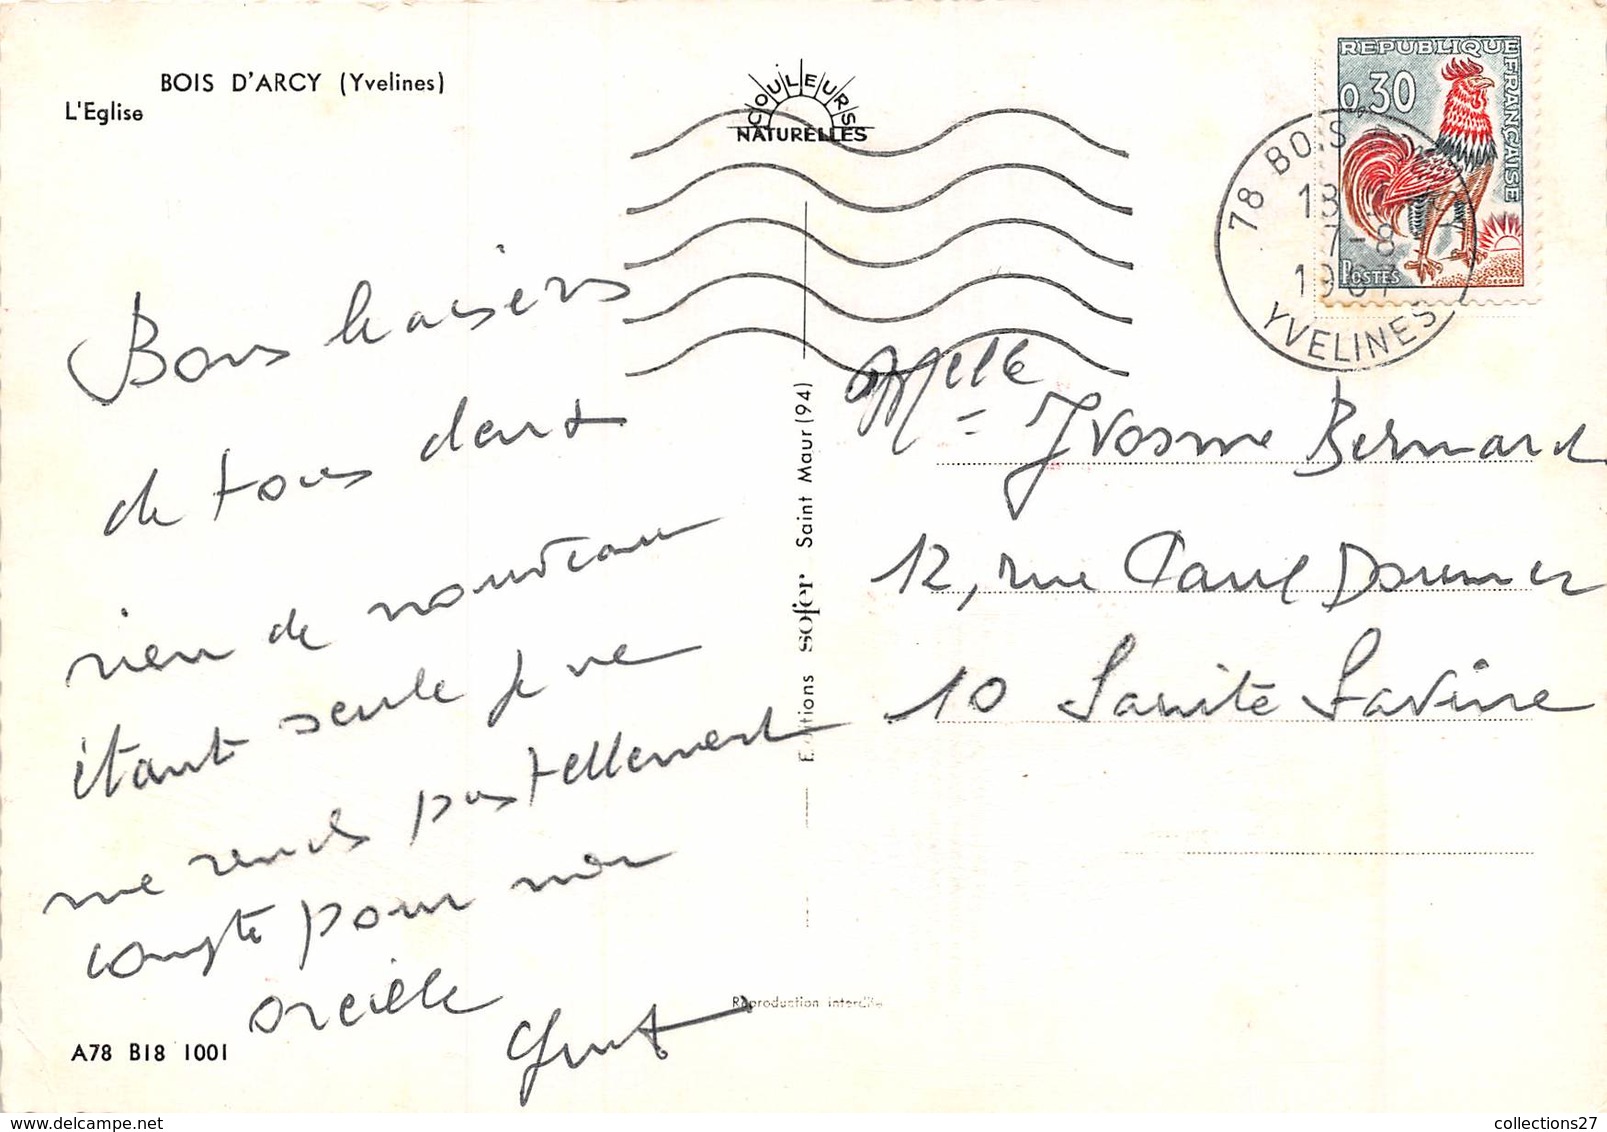 BOIS D'ARCY (Yvelines)
L'Eglise
COULEURS
NATURELLES
REPUBLIQUE FRANÇAISE
0,30
POSTES
DECARIS
78 BOIS
18
7-8
1967
YVELINES
Bons baisers
de tous deux
rien de nouveau
étant seule je ne
me rends pas tellement
compte pour mon
oreille
Melle
Yvonne Bernard
12, rue Paul Doumer
10 Sainte Savine
Editions sofer Saint Maur (94)
Reproduction interdite
A78 B18 1001
collections27